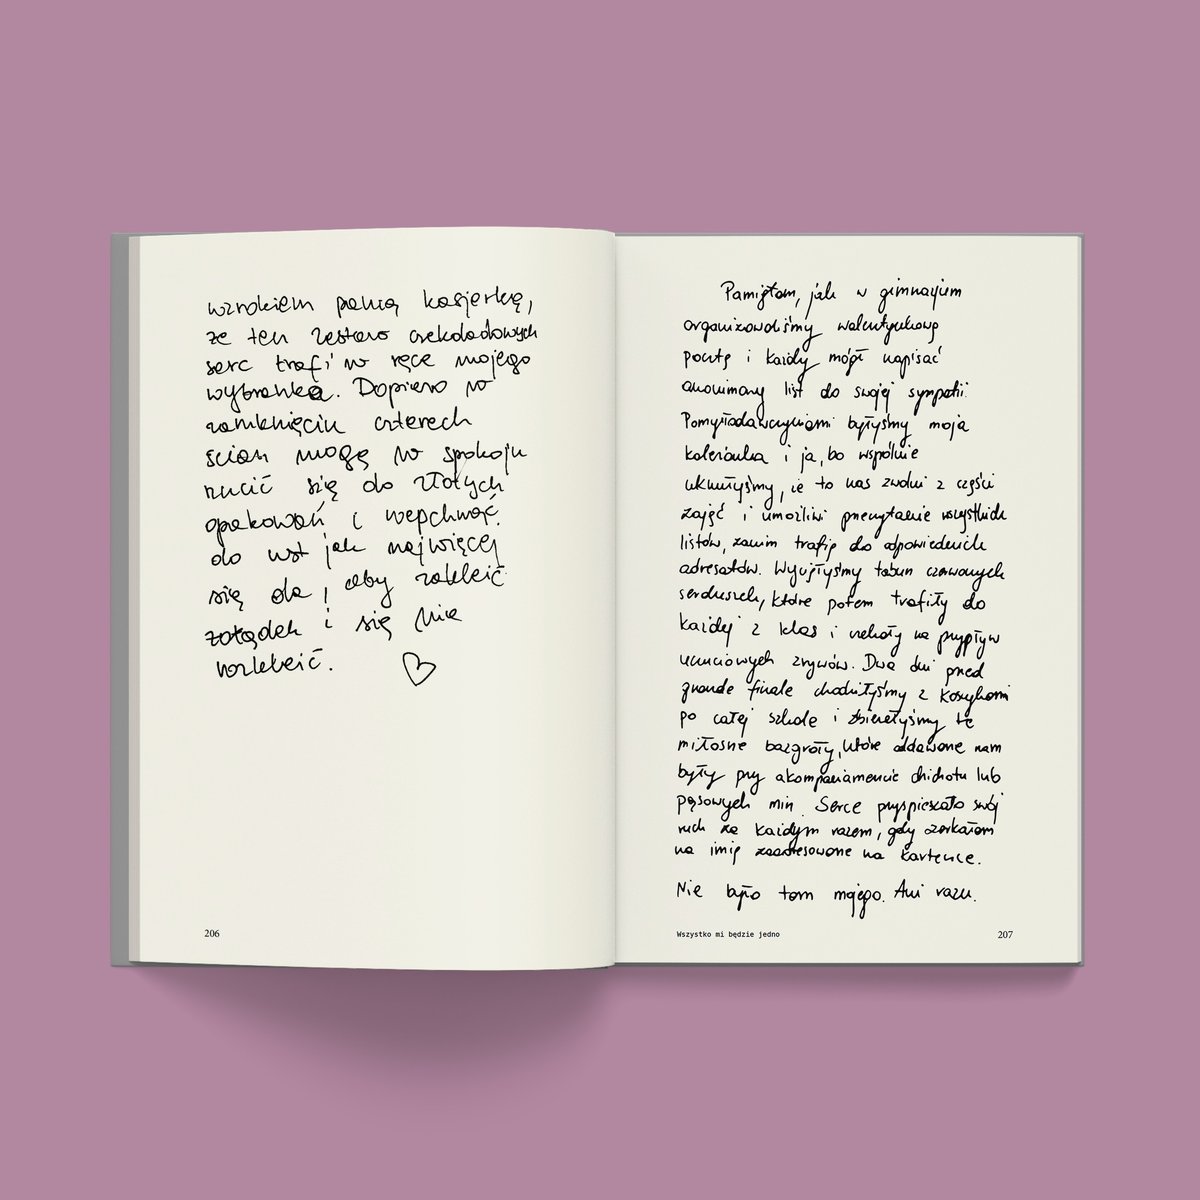 wzrokiem panią kasjerkę,
że ten zestaw czekoladowych
serc trafi w ręce mojego
wybranka. Dopiero po
zamknięciu czterech
ścian mogę w spokoju
rzucić się do złotych
opakowań i wepchnąć
do ust jak najwięcej
się da, aby zakleić
żołądek i się nie
rozkleić.
206
Pamiętam, jak w gimnazjum
organizowaliśmy walentynkową
pocztę i każdy mógł napisać
anonimowy list do swojej sympatii.
Pomysłodawczyniami byłyśmy moja
koleżanka i ja, bo wspólnie
uknułyśmy, że to nas zwolni z części
zajęć i umożliwi przeczytanie wszystkich
listów, zanim trafią do odpowiednich
adresatów. Wycięłyśmy tabun czerwonych
serduszek, które potem trafiły do
każdej z klas i czekały na przypływ
uczuciowych zrywów. Dwa dni przed
grande finale chodziłyśmy z koszykami
po całej szkole i zbierałyśmy te
miłosne bazgroły, które oddawane nam
były przy akompaniamencie chichotu lub
pąsowych min. Serce przyspieszało swój
ruch za każdym razem, gdy zerkałam
na imię zaadresowane na karteczce.
Nie było tam mojego. Ani razu.
Wszystko mi będzie jedno
207